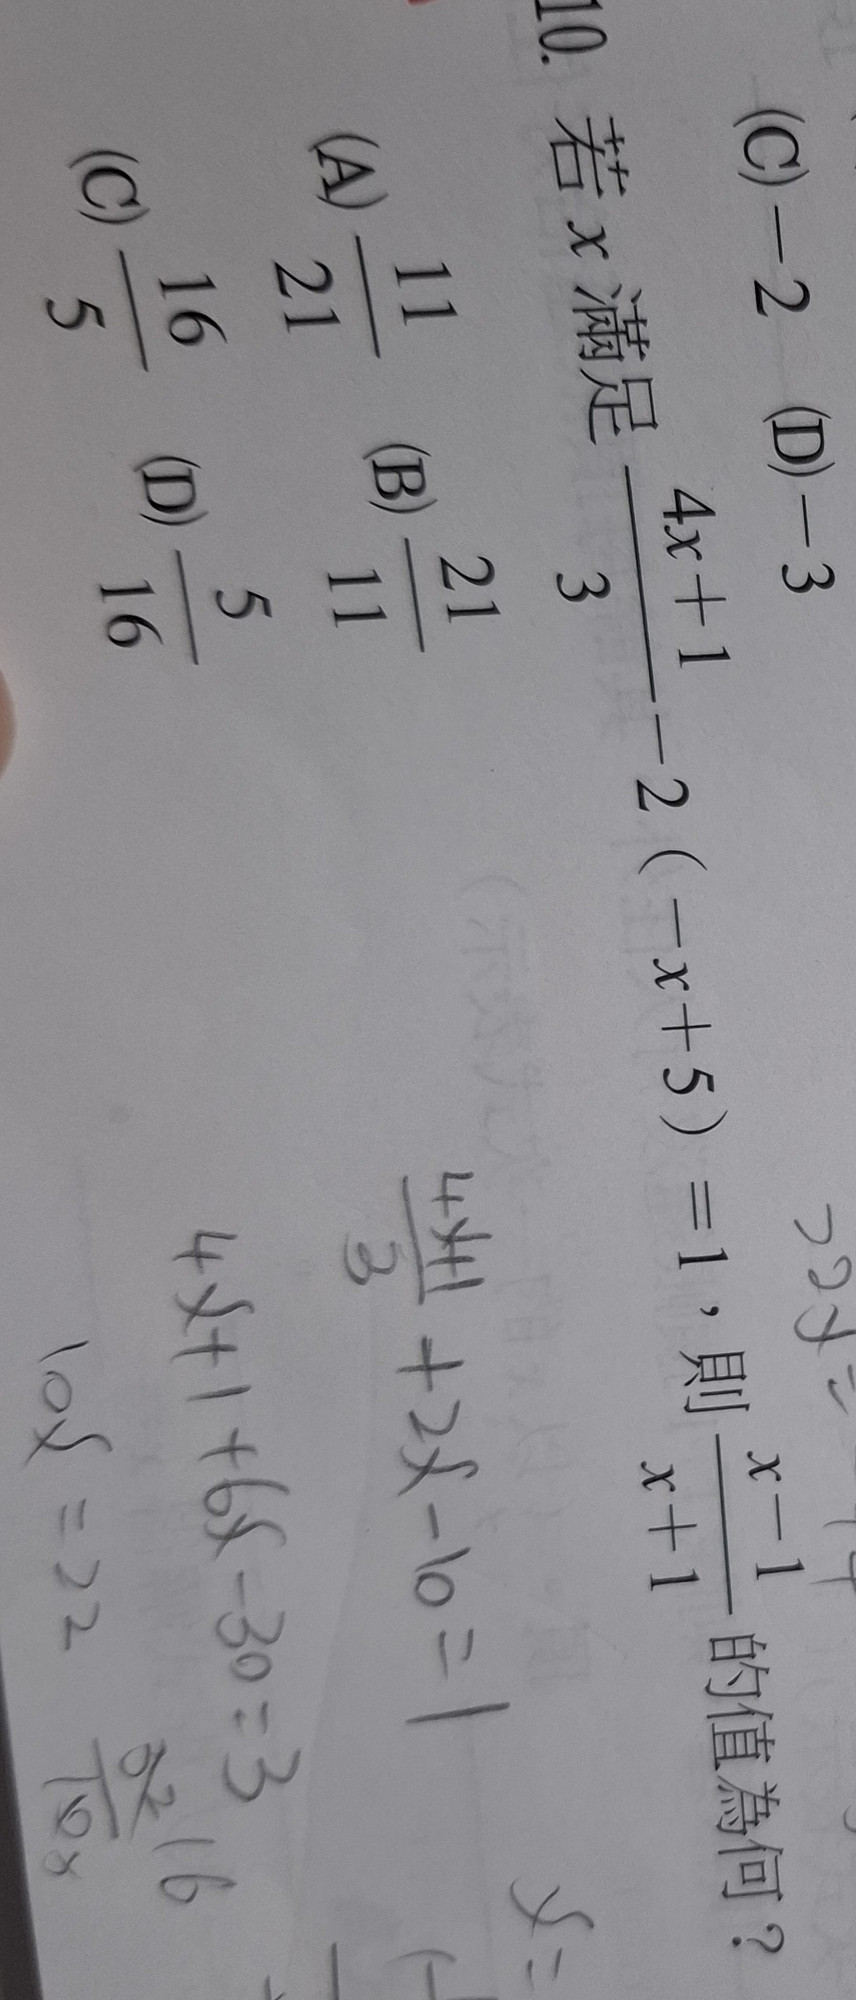 (C) −2 (D) −3
10. 若 x 滿足 \frac{4x+1}{3} −2（−x+5）=1，則 \frac{x−1}{x+1} 的值為何？
(A) \frac{11}{21} (B) \frac{21}{11}
(C) \frac{16}{5} (D) \frac{5}{16}
\frac{4x+1}{3} + 2x − 10 = 1
4x+1+6x−30=3
10x = 22
16
x =